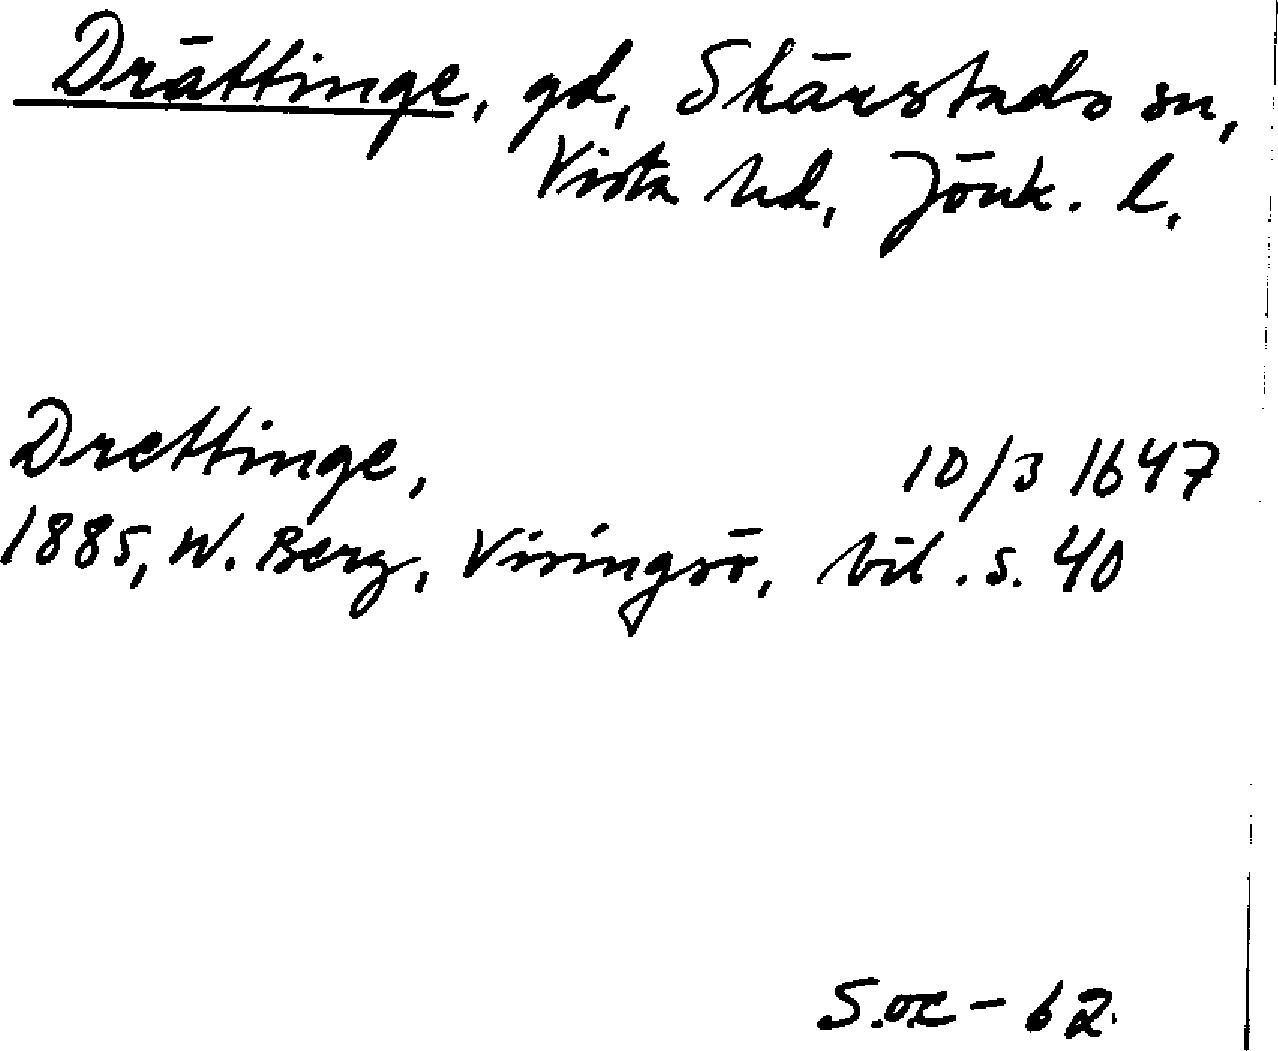 Drättinge, gd, Skärstads sn,
Vista hd, Jönk. l.
Drettinge, 10/3 1647
1885, W. Berg, Visingsö, bil. s. 40
S.OE-62.